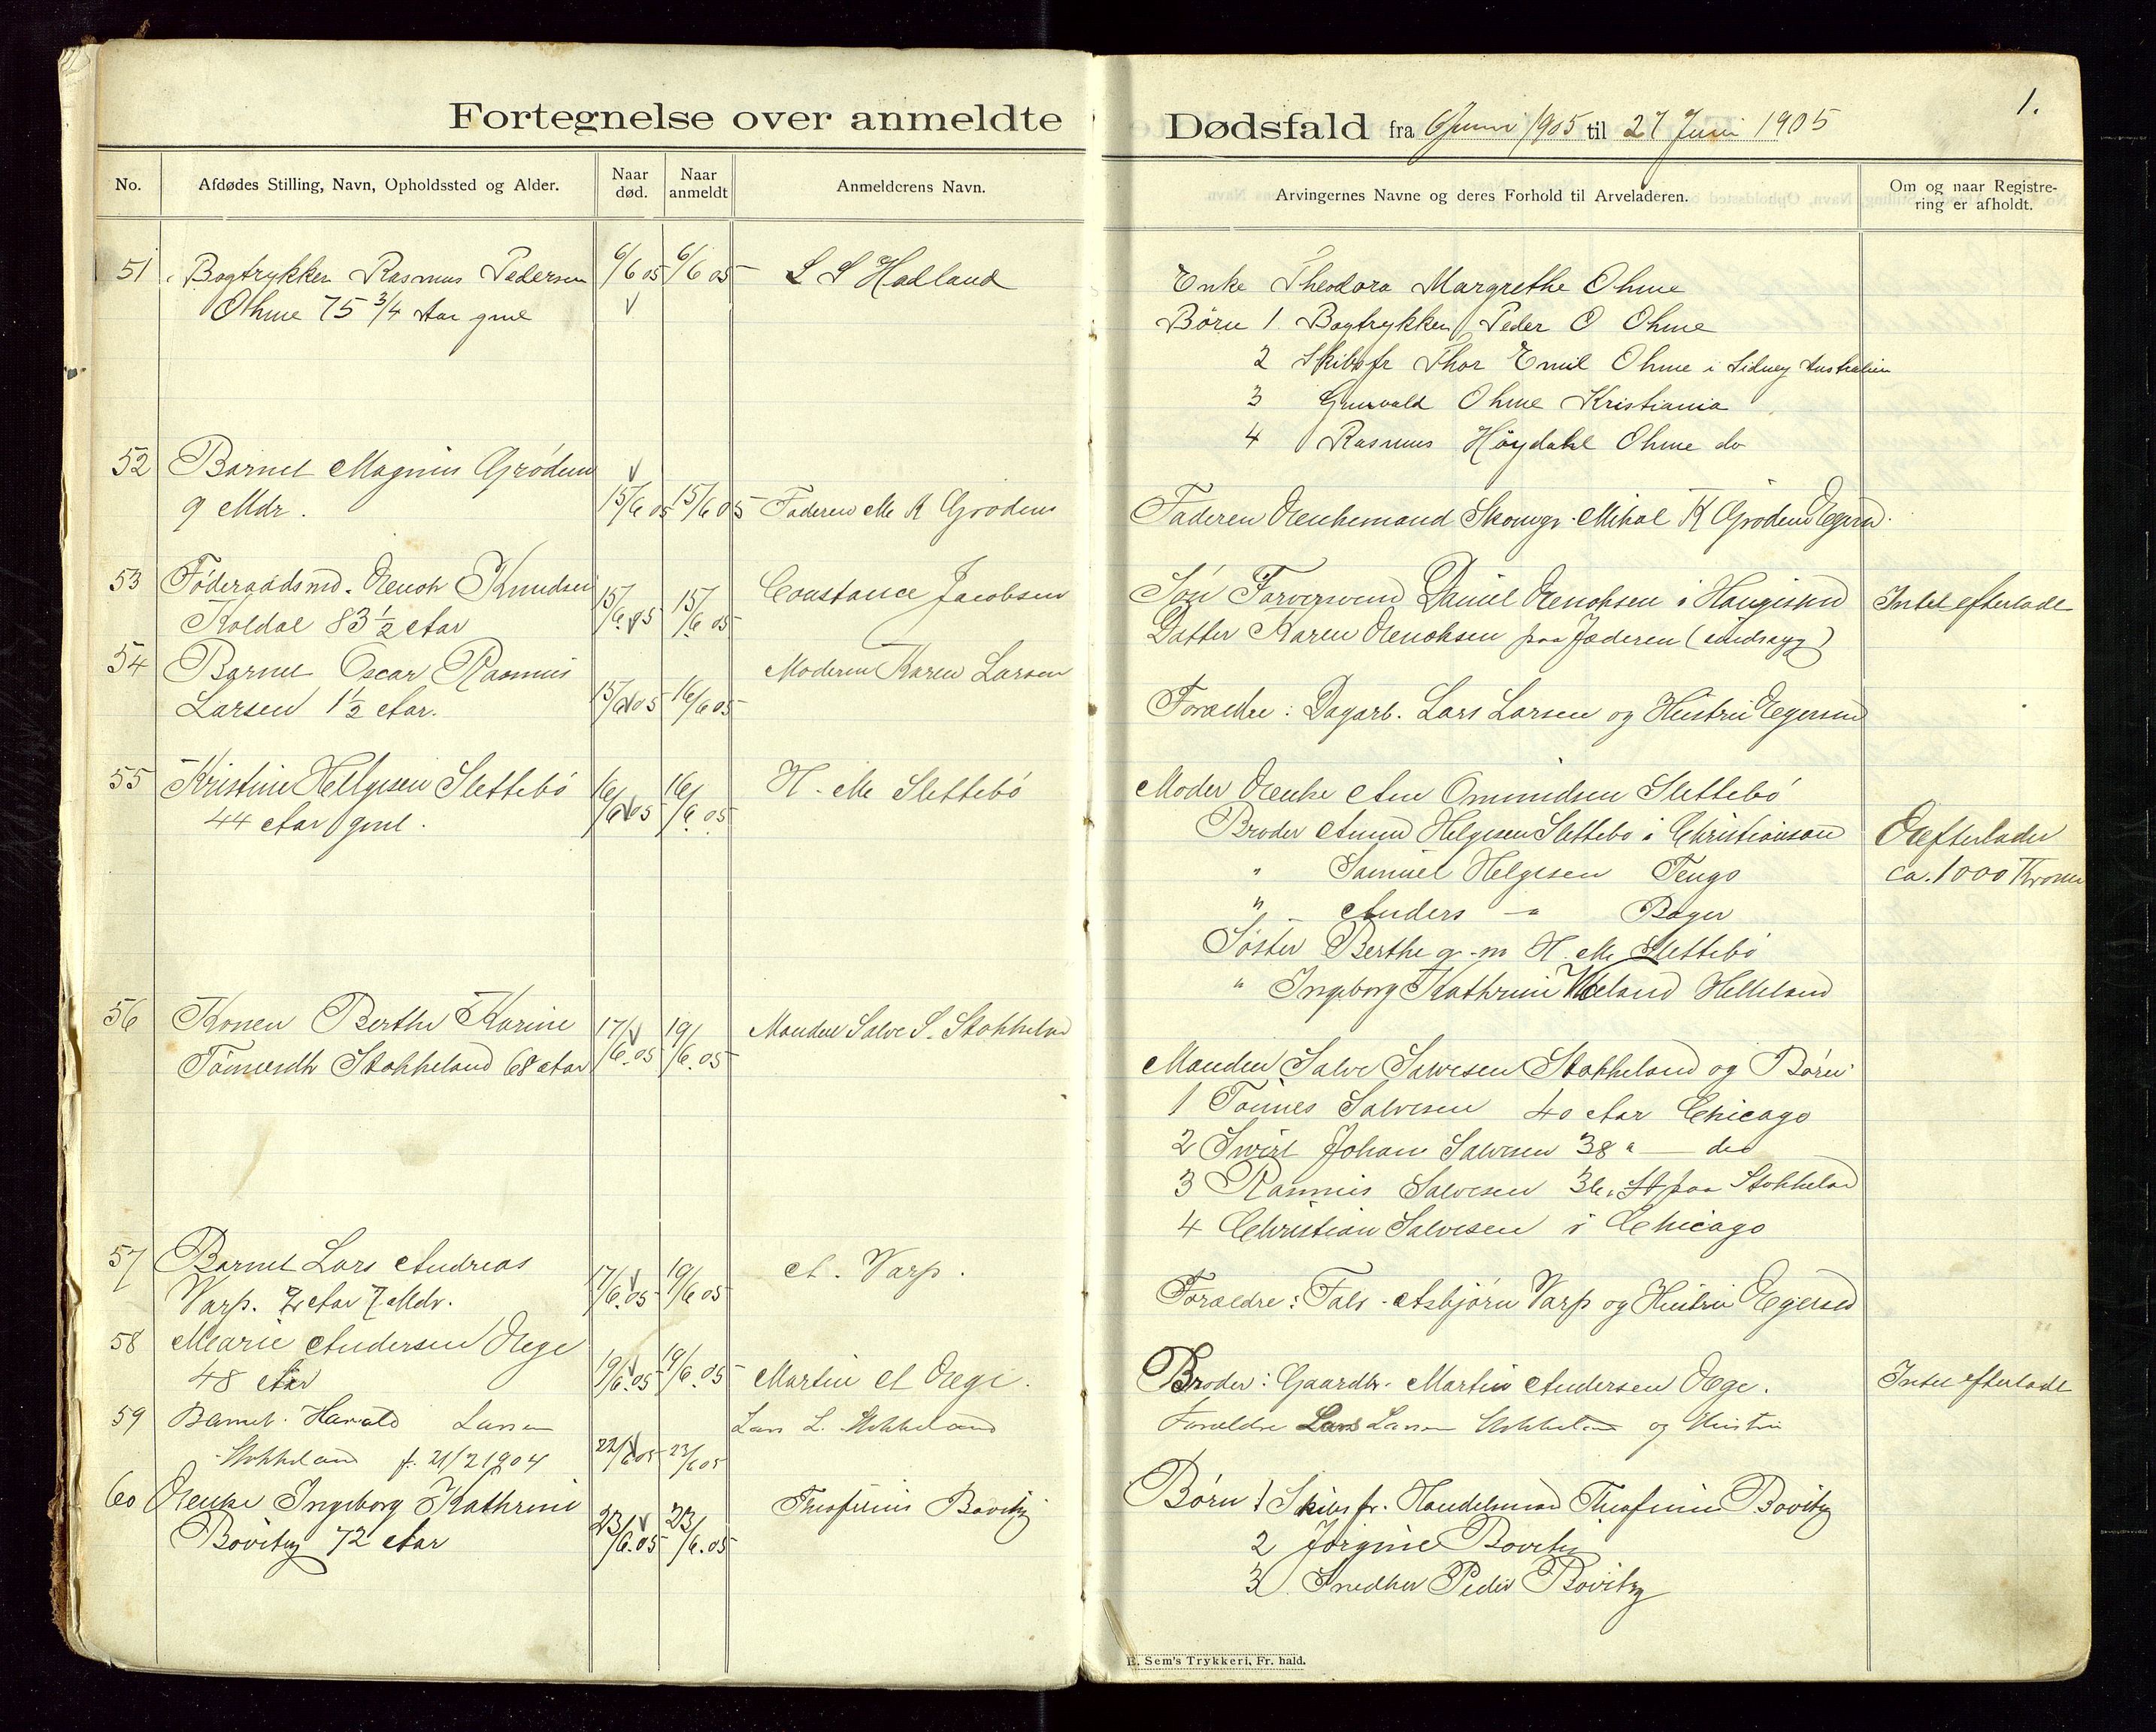 Fortegnelse over anmeldte
Dødsfald fra 6 Juni 1905 til 27 Juni 1905
1.
No.
Afdødes Stilling, Navn, Opholdssted og Alder.
Naar død.
Naar anmeldt
Anmelderens Navn.
Arvingernes Navne og deres Forhold til Arveladeren.
Om og naar Registre-
ring er afholdt.
51 Bogtrykker Rasmus Pedersen 6/6 05 6/6 05 L S Halland
Ohme 75 3/4 Aar gml
Enke Theodora Margrethe Ohme
Børn 1. Bogtrykker Peder O Ohme
2 Skibsfr Thor Emil Ohme i Sidney Australien
3 Grunvald Ohme Kristiania
4 Rasmus Høydahl Ohme do
52 Barnet Magnus Grødem
9 Mdr. 15/6 05 15/6 05 Faderen M K Grødem
Faderen Enkemand Skomgr. Mikal K Grødem Egersd.
53 Føderaadsmd. Enok Knudsen 15/6 05 15/6 05 Constance Jacobsen
Koldal 83 1/2 Aar
Søn Farversvend Daniel Enoksen i Haugesund
Datter Karen Enoksen paa Jæderen (sindssyg)
Intet efterladt
54 Barnet Oscar Rasmus Moderen Karen Larsen
Larsen 1 1/2 Aar. 15/6 05 16/6 05
Forældre: Dagarb. Lars Larsen og Hustru Egersund
55 Kristine Hellgesen Slettebø 16/6 05 16/6 05 H. M Slettebø
44 Aar gml.
Moder Enke Ane Omundsen Slettebø
Broder Amund Helgesen Slettebø i Christiansan
" Samuel Helgesen Tengs
" Anders — " Bøger
Søster Berthe g. m H. M. Slettebø
" Ingeborg Kathrine Helland
Efterlader
ca. 1000 Kroner
56 Konen Berthe Karine 17/6.05 19/6.05 Manden Salve S. Stokkeland
Tønnesdtr Stokkeland 68 Aar
Manden Salve Salvesen Stokkeland og Børn
1 Tønnes Salvesen 40 Aar Chicago
2 Johan Salvesen 38 " — do
3 Rasmus Salvesen 36 " paa Stokkeland
4 Christian Salvesen i Chicago
57 Barnet Lars Andreas A. Varp.
Varp. 2 Aar 7 Mdr. 17/6.05 19/6 05
Forældre: Fabr. Asbjørn Varp og Hustru Egersund
58 Marie Andersen Ege
48 Aar 19/6.05 19/6.05 Martin A Ege.
Broder: Gaardbr. Martin Andersen Ege.
Intet efterladt
59 Barnet. Harald Larsen Lars L. Stokkeland
Stokkeland f. 21/2 1904 22/6 05 23/6 05
Forældre Lars Larsen Stokkeland og Hustru
60 Enke Ingeborg Kathrine 23/6.05 23/6.05 Theofinius Bovitz
Bovitz 72 Aar
Børn 1 Skibsfr. Handelsmand Theofinius Bovitz
2 Jørgine Bovitz
3 Snedker Peder Bovitz
E. Sem's Trykkeri, Fr. hald.